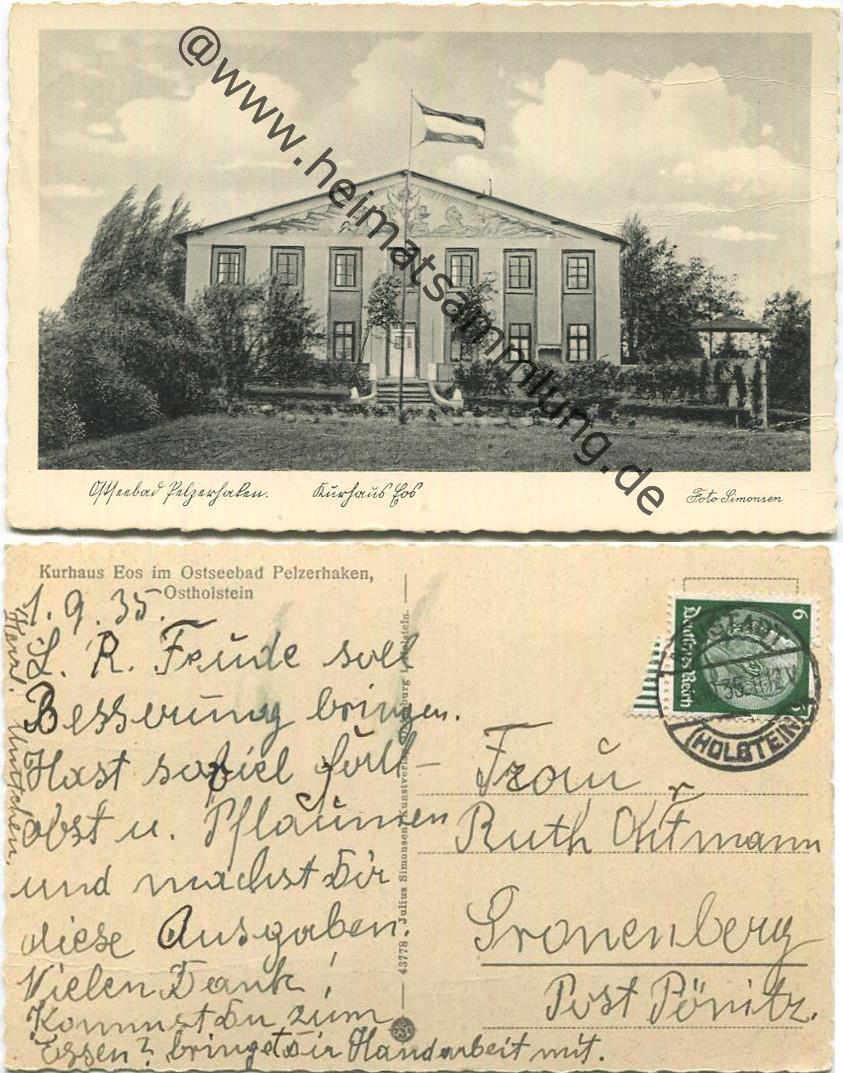 @www.heimatsammlung.de
Ostseebad Pelzerhaken. Kurhaus Eos
Foto Simonsen
Kurhaus Eos im Ostseebad Pelzerhaken,
Ostholstein
1. 9. 35.
L. R. Freude soll
Besserung bringen.
Hast sofiel Fall-
obst u. Pflaumen
und machst Dir
diese Ausgaben.
Vielen Dank!
Kommst Du zum
Essen? bringe Dir Handarbeit mit.
Herzl. Muttchen.
43778 Julius Simonsen, Kunstverlag, Oldenburg Holstein.
6
Deutsches Reich
NEUSTADT
(HOLSTEIN)
Frau
Ruth Ohtmann
Gronenberg
Post Pönitz.